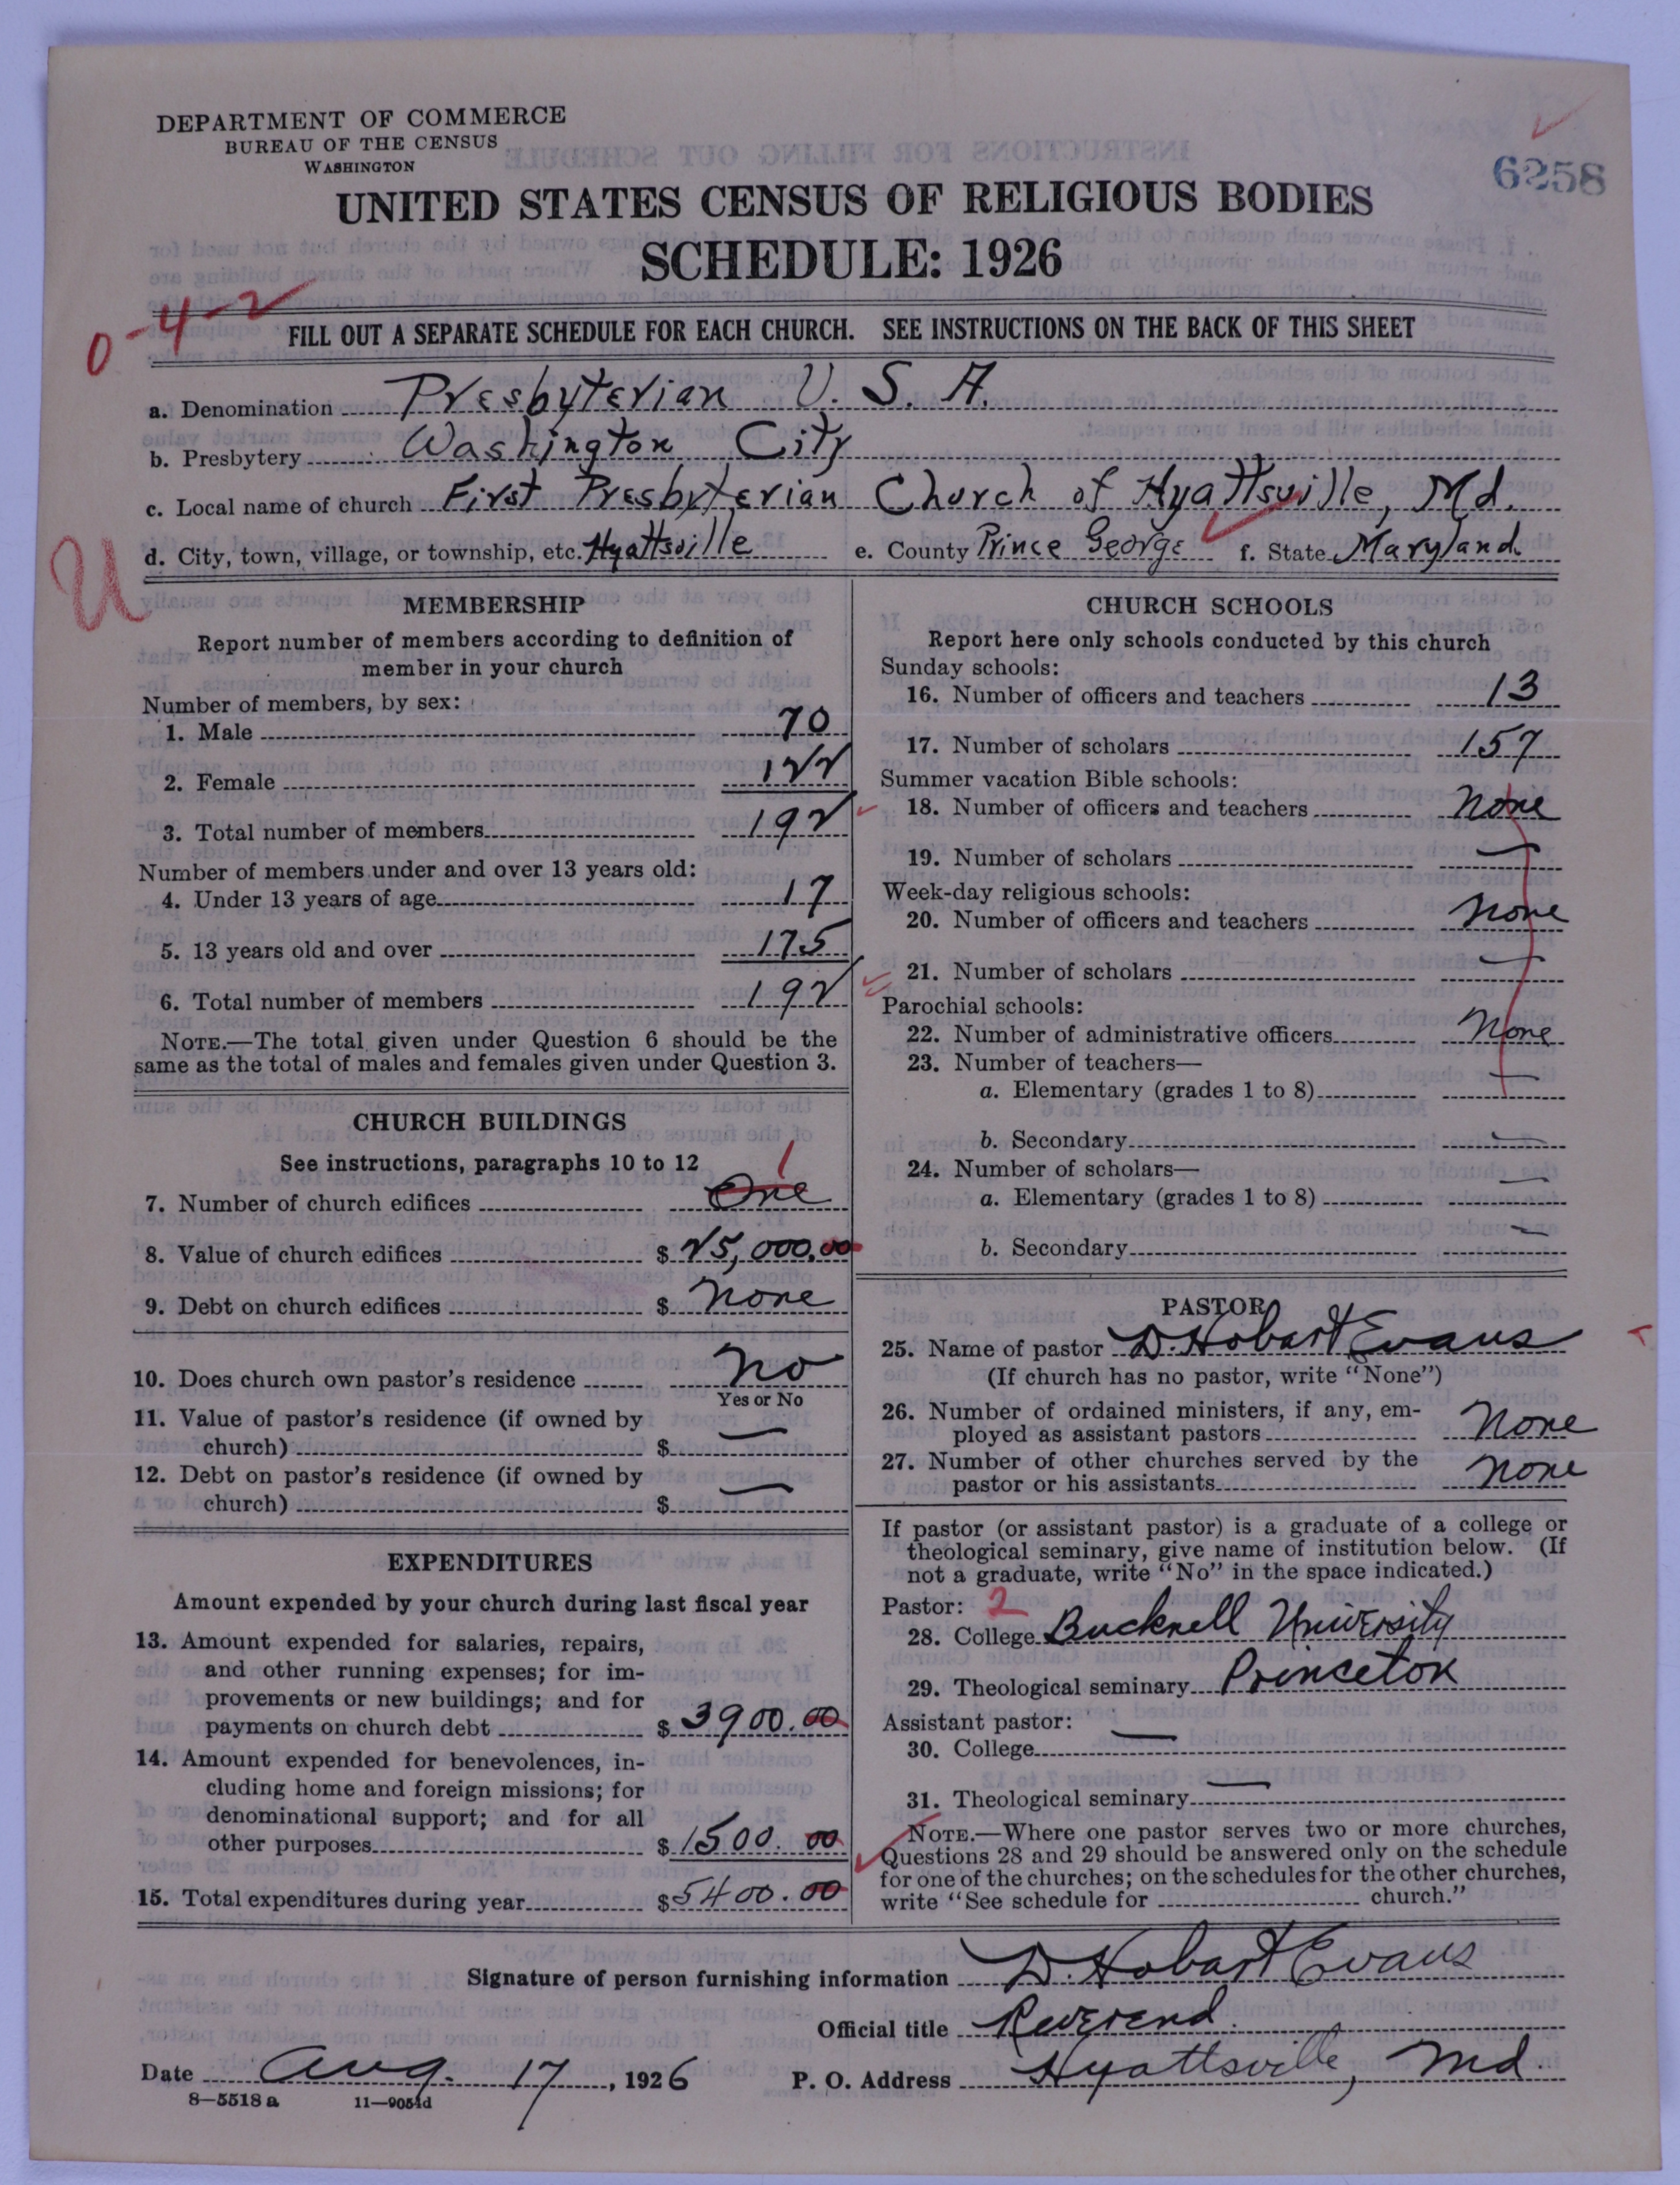 DEPARTMENT OF COMMERCE
BUREAU OF THE CENSUS
WASHINGTON
6258
UNITED STATES CENSUS OF RELIGIOUS BODIES
SCHEDULE: 1926
0-4-2
FILL OUT A SEPARATE SCHEDULE FOR EACH CHURCH. SEE INSTRUCTIONS ON THE BACK OF THIS SHEET
a. Denomination Presbyterian U. S. A.
b. Presbytery Washington City
c. Local name of church First Presbyterian Church of Hyattsville, Md.
d. City, town, village, or township, etc. Hyattsville e. County Prince George f. State Maryland.
U
MEMBERSHIP
Report number of members according to definition of
member in your church
Number of members, by sex:
1. Male 70
2. Female 122
3. Total number of members 192
Number of members under and over 13 years old:
4. Under 13 years of age 17
5. 13 years old and over 175
6. Total number of members 192
NOTE.—The total given under Question 6 should be the
same as the total of males and females given under Question 3.
CHURCH BUILDINGS
See instructions, paragraphs 10 to 12
1
7. Number of church edifices One
8. Value of church edifices $ 25,000.00
9. Debt on church edifices $ none
10. Does church own pastor's residence no
Yes or No
11. Value of pastor's residence (if owned by
church) $ —
12. Debt on pastor's residence (if owned by
church) $ —
EXPENDITURES
Amount expended by your church during last fiscal year
13. Amount expended for salaries, repairs,
and other running expenses; for im-
provements or new buildings; and for
payments on church debt $ 3900.00
14. Amount expended for benevolences, in-
cluding home and foreign missions; for
denominational support; and for all
other purposes $ 1500.00
15. Total expenditures during year $ 5400.00
CHURCH SCHOOLS
Report here only schools conducted by this church
Sunday schools:
16. Number of officers and teachers 13
17. Number of scholars 157
Summer vacation Bible schools:
18. Number of officers and teachers none
19. Number of scholars —
Week-day religious schools:
20. Number of officers and teachers none
21. Number of scholars —
Parochial schools:
22. Number of administrative officers none
23. Number of teachers—
a. Elementary (grades 1 to 8) —
b. Secondary —
24. Number of scholars—
a. Elementary (grades 1 to 8) —
b. Secondary —
PASTOR
25. Name of pastor D. Hobart Evans
(If church has no pastor, write "None")
26. Number of ordained ministers, if any, em-
ployed as assistant pastors none
27. Number of other churches served by the
pastor or his assistants none
If pastor (or assistant pastor) is a graduate of a college or
theological seminary, give name of institution below. (If
not a graduate, write "No" in the space indicated.)
Pastor: 2
28. College Bucknell University
29. Theological seminary Princeton
Assistant pastor:
30. College —
31. Theological seminary —
NOTE.—Where one pastor serves two or more churches,
Questions 28 and 29 should be answered only on the schedule
for one of the churches; on the schedules for the other churches,
write "See schedule for church."
Signature of person furnishing information D. Hobart Evans
Official title Reverend.
Date Aug. 17, 1926 P. O. Address Hyattsville, Md.
8—5518 a 11—9054d